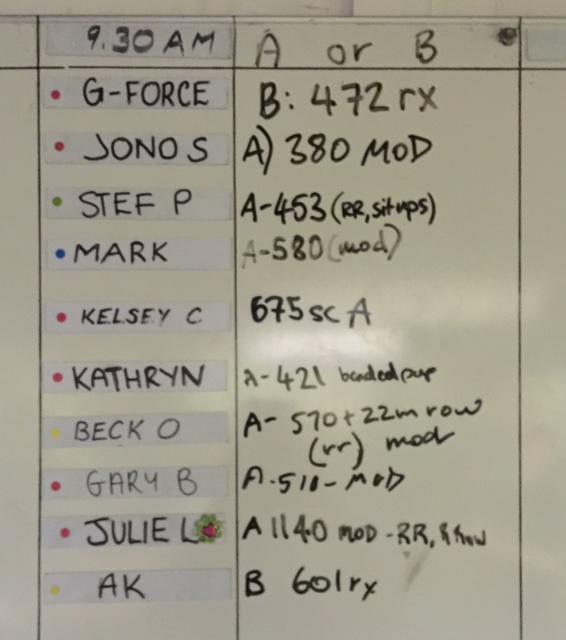 9.30 AM A or B
G-FORCE B: 472 rx
JONO S A) 380 MOD
STEF P A-453 (RR, situps)
MARK A-580 (mod)
KELSEY C 675 sc A
KATHRYN A-421 banded
BECK O A- 570 + 22m row
(rr) mod
GARY B A-510- MOD
JULIE L A 1140 MOD - RR,
AK B 601 rx